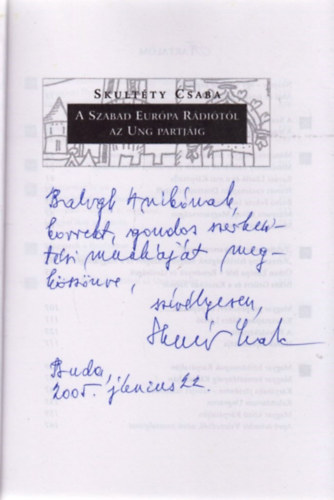 SKULTÉTY CSABA
A SZABAD EURÓPA RÁDIÓTÓL
AZ UNG PARTJÁIG
Balogh Anikónak,
korrekt, gondos szerkesz-
tési munkáját meg-
köszönve,
szívélyesen,
Buda,
2005. június 22.